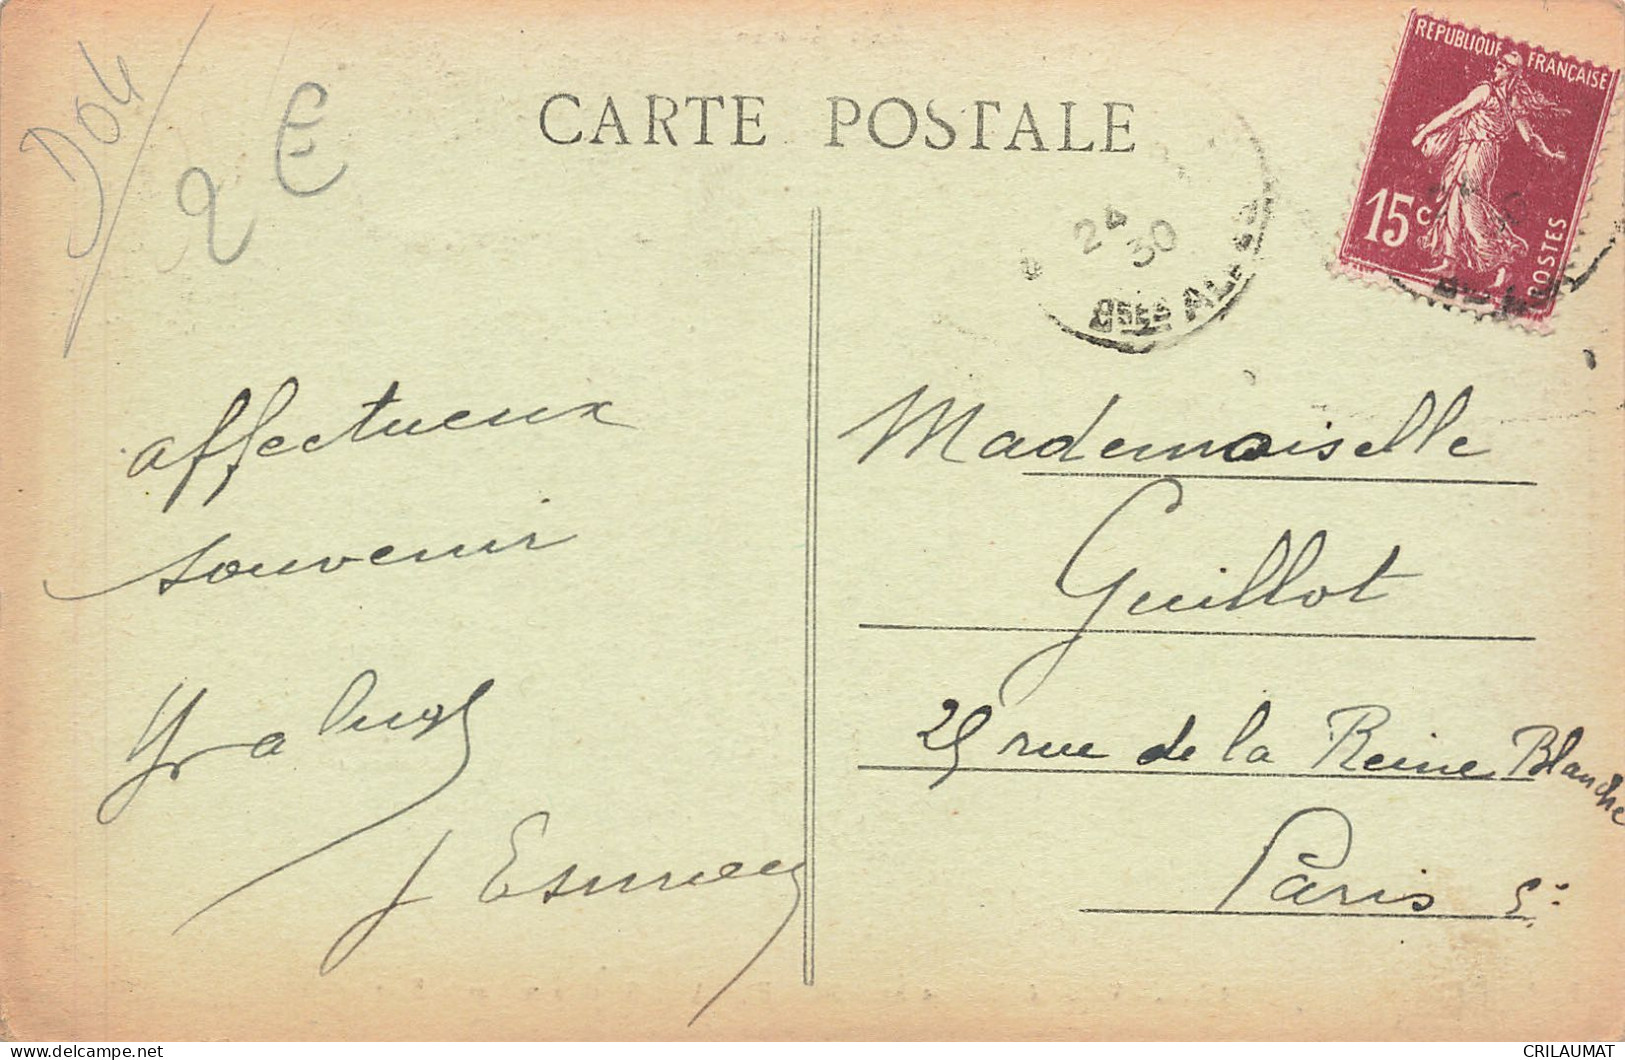 D04
2 E
CARTE POSTALE
REPUBLIQUE FRANÇAISE
15c
POSTES
24
30
Bses ALPES
affectueux
souvenir
Mademoiselle
Guillot
25 rue de la Reine Blanche
Paris
CRILAUMAT